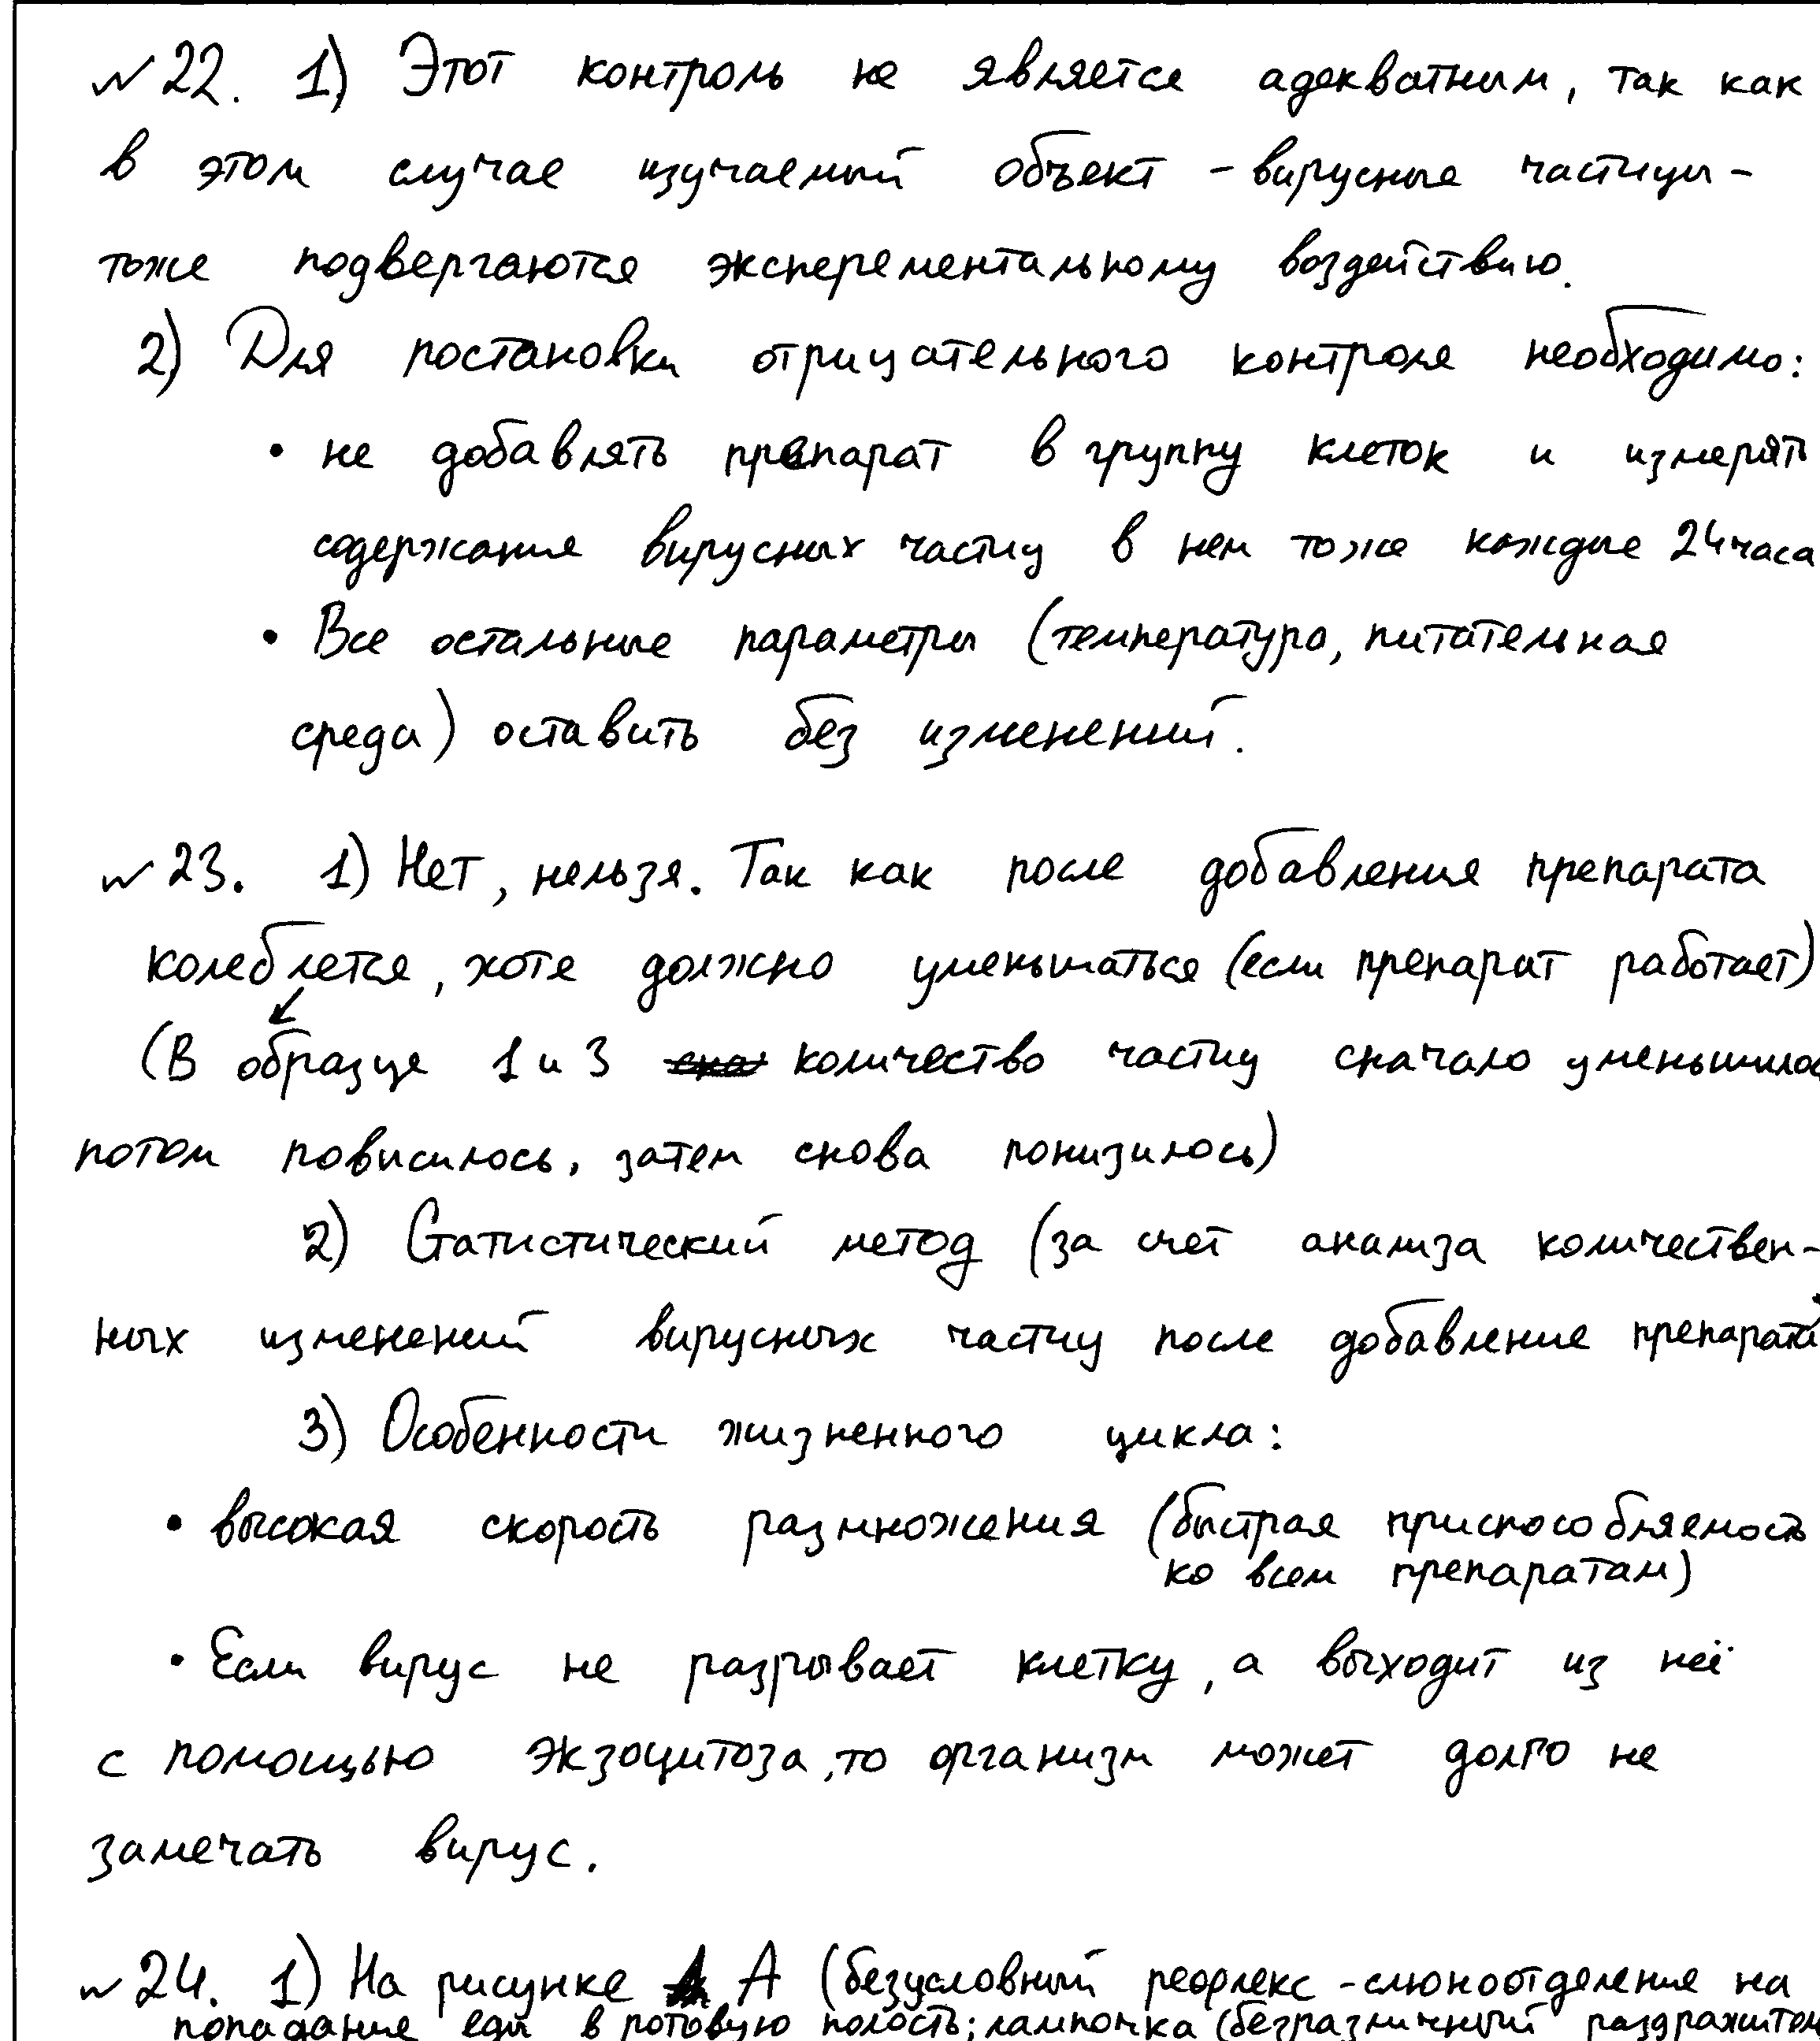 № 22. 1) Этот контроль не является адекватным, так как
в этом случае изучаемый объект - вирусные частицы -
тоже подвергаются эксперементальному воздействию.
2) Для постановки отрицательного контроля необходимо:
• не добавлять препарат в группу клеток и измерять
содержание вирусных частиц в нем тоже каждые 24 часа
• Все остальные параметры (температура, питательная
среда) оставить без изменений.
№ 23. 1) Нет, нельзя. Так как после добавления препарата
колеблется, хотя должно уменьшаться (если препарат работает)
(В образце 1 и 3 количество частиц сначало уменьшилос
потом повысилось, затем снова понизилось)
2) Статистический метод (за счет анализа количествен-
ных изменений вирусных частиц после добавление препарата
3) Особенности жизненного цикла:
• высокая скорость размножения (быстрая приспособляемость
ко всем препаратам)
• Если вирус не разрывает клетку, а выходит из неё
с помощью экзоцитоза, то организм может долго не
замечать вирус.
№ 24. 1) На рисунке А (безусловный рефлекс - слюноотделение на
попадание еды в ротовую полость; лампочка (безразличный раздражител